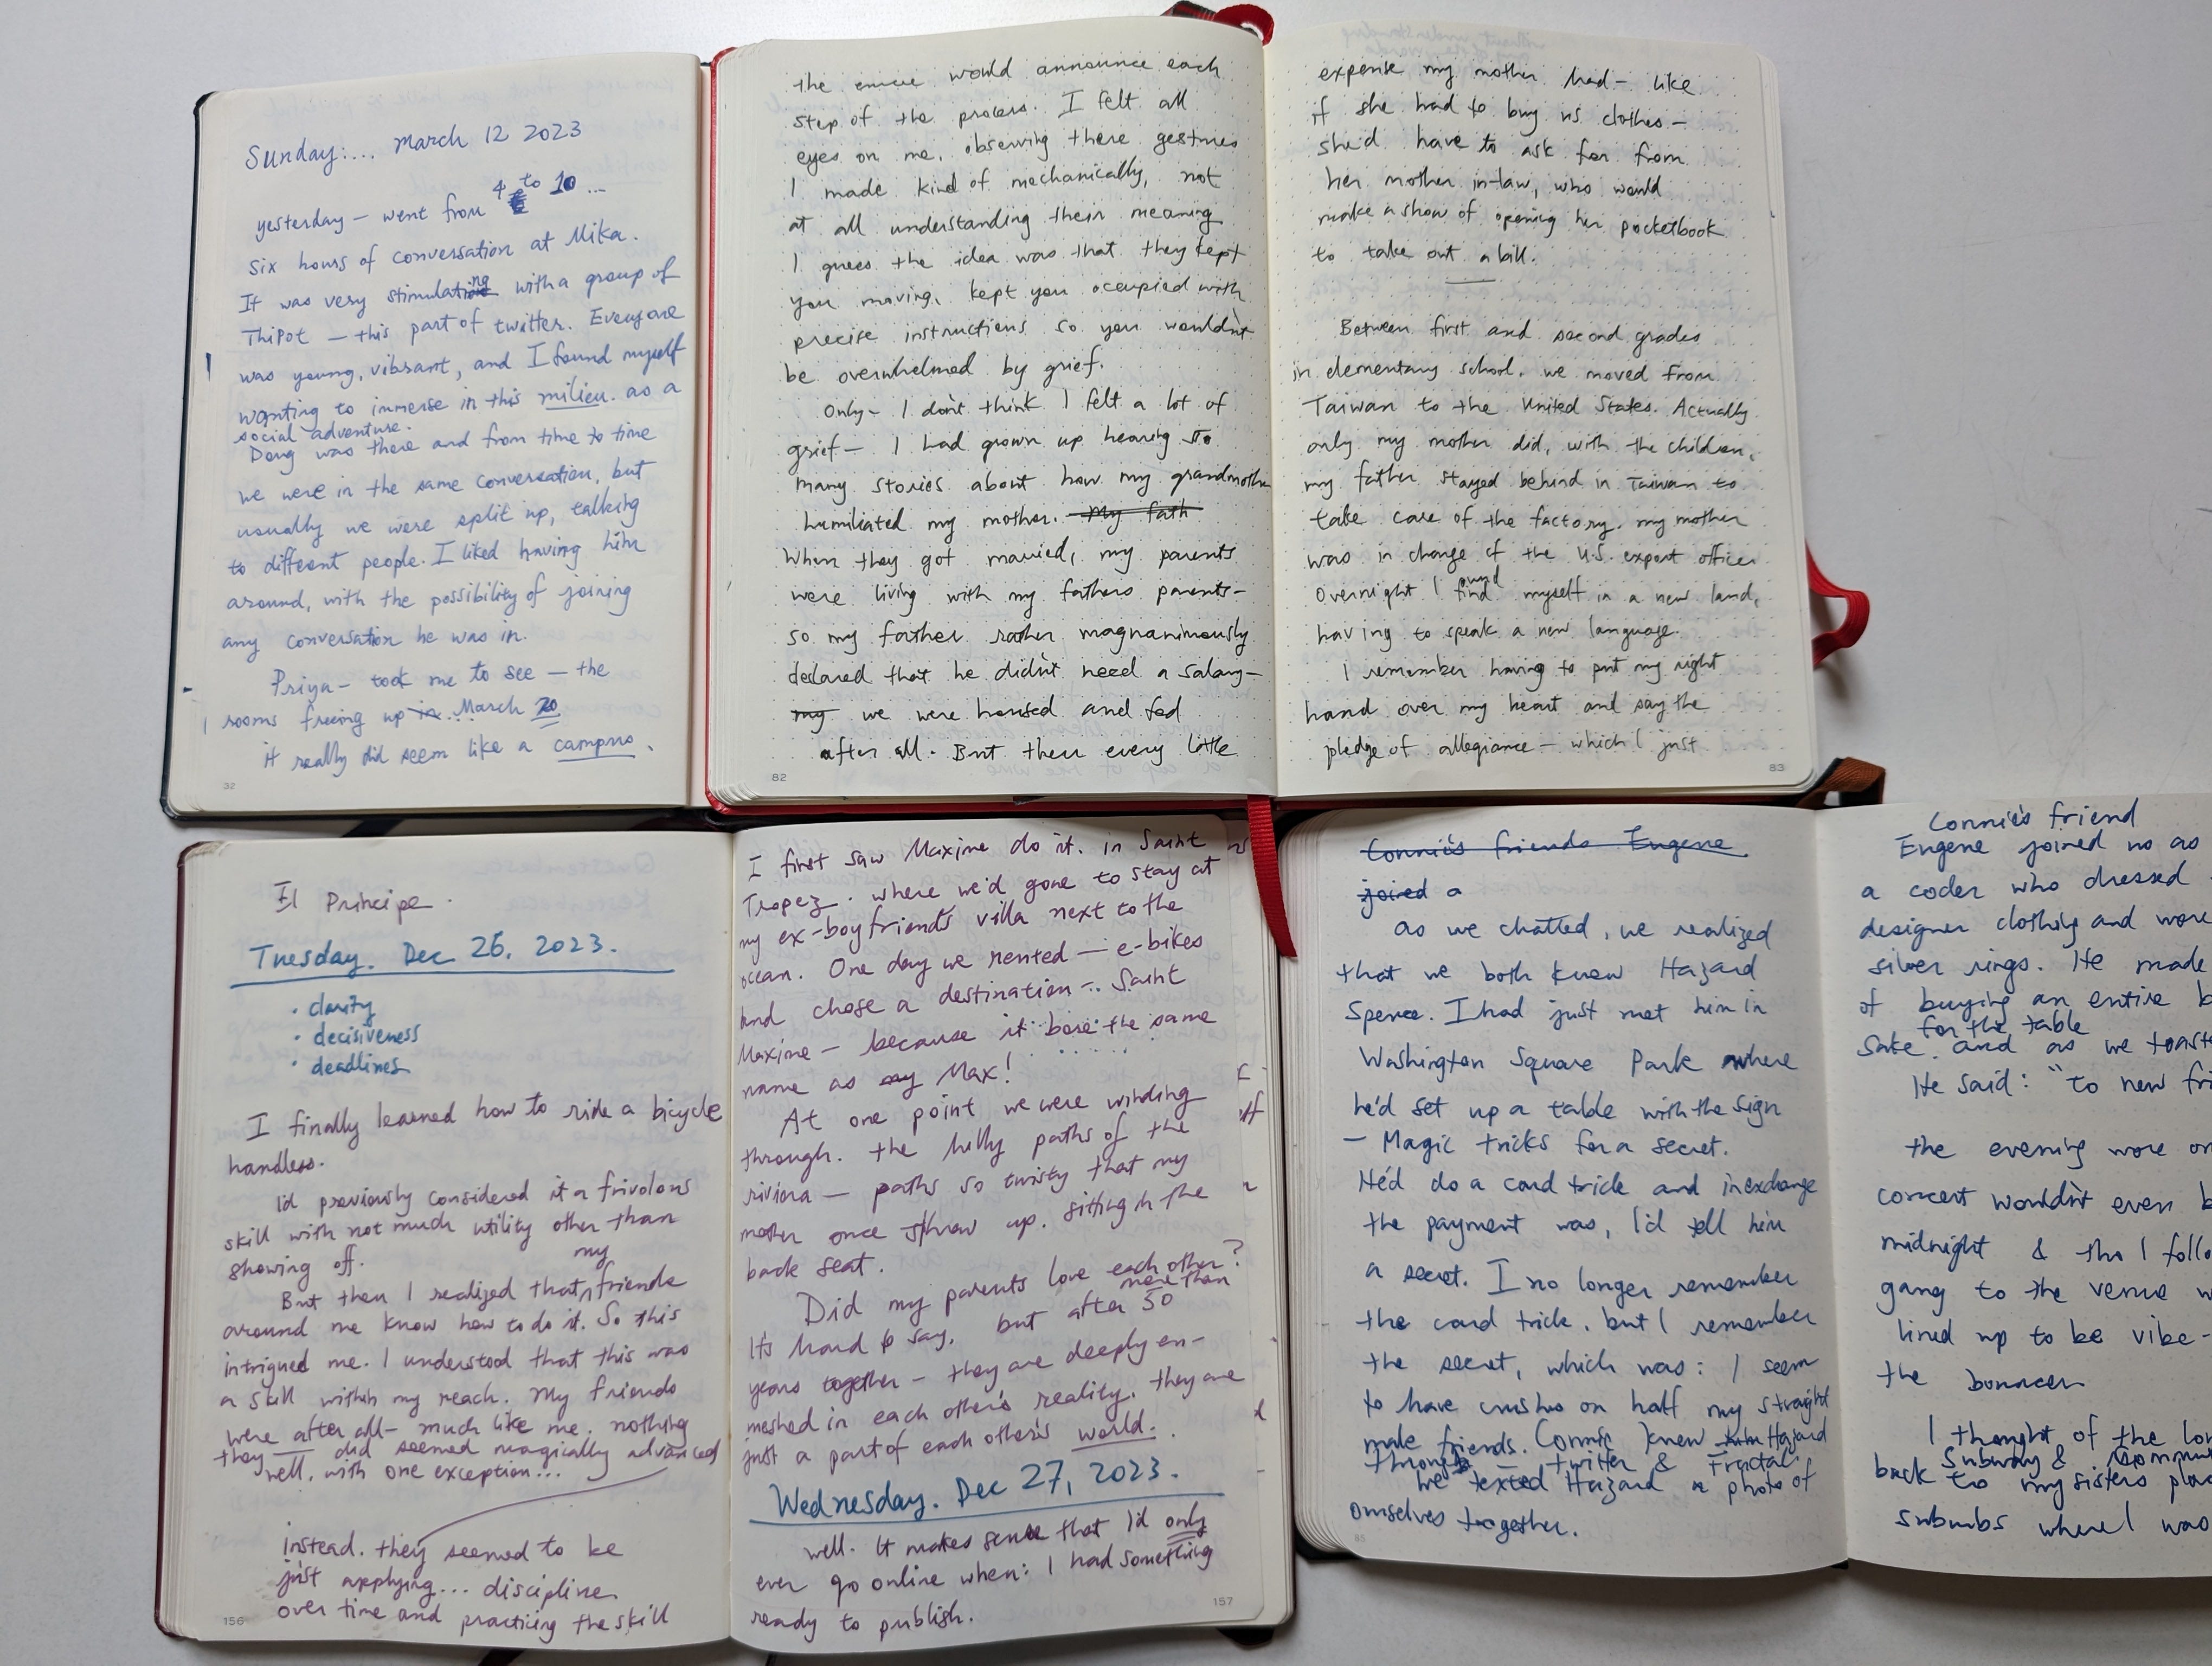 Sunday:... March 12 2023
yesterday — went from 4 to 10 ...
six hours of conversation at Mika.
It was very stimulating with a group of
ThiPot — this part of twitter. Everyone
was young, vibrant, and I found myself
wanting to immerse in this milieu. as a
social adventure.
Dong was there and from time to time
we were in the same conversation, but
usually we were split up, talking
to different people. I liked having him
around, with the possibility of joining
any conversation he was in.
Priya — took me to see — the
rooms freeing up in... March 20
it really did seem like a campus.
32
the emcee would announce each
step of the process. I felt all
eyes on me, observing there gestures
I made kind of mechanically, not
at all understanding their meaning
I guess the idea was that they kept
you moving, kept you occupied with
precise instructions so you wouldn't
be overwhelmed by grief.
Only — I don't think I felt a lot of
grief — I had grown up hearing so
many stories about how my grandmother
humiliated my mother. My fath
When they got married, my parents
were living with my fathers parents —
so my father rather magnanimously
declared that he didn't need a salary —
my we were housed and fed
after all. But then every little
82
expense my mother had — like
if she had to buy us clothes —
she'd have to ask for from
her mother in-law, who would
make a show of opening her pocketbook
to take out a bill.
Between first and second grades
in elementary school, we moved from
Taiwan to the United States. Actually
only my mother did, with the children,
my father stayed behind in Taiwan to
take care of the factory. my mother
was in charge of the U.S. export office
Overnight I found myself in a new land,
having to speak a new language.
I remember having to put my right
hand over my heart and say the
pledge of allegiance — which I just
83
Il Principe.
Tuesday. Dec 26, 2023.
· clarity
· decisiveness
· deadlines
I finally learned how to ride a bicycle
handless.
I'd previously considered it a frivolous
skill with not much utility other than
showing off.
But then I realized that my friends
around me know how to do it. So this
intrigued me. I understood that this was
a skill within my reach. My friends
were after all — much like me. nothing
they — did seemed magically advanced
well, with one exception...
instead. they seemed to be
just applying... discipline
over time and practicing the skill
156
I first saw Maxime do it. in Saint
Tropez. where we'd gone to stay at
my ex-boyfriend's villa next to the
ocean. One day we rented — e-bikes
and chose a destination — Saint
Maxime — because it bore the same
name as my Max!
At one point we were winding
through. the hilly paths of the
riviera — paths so twisty that my
mother once threw up. sitting in the
back seat.
Did my parents love each other?
It's hard to say, but after more than 50
years together — they are deeply en-
meshed in each other's reality. they are
just a part of each other's world.
Wednesday. Dec 27, 2023.
well. It makes sense that I'd only
ever go online when: I had something
ready to publish.
157
Connie's friends Eugene
joined a
as we chatted, we realized
that we both knew Hazard
Spence. I had just met him in
Washington Square Park where
he'd set up a table with the sign
— Magic tricks for a secret.
He'd do a card trick and in exchange
the payment was, I'd tell him
a secret. I no longer remember
the card trick, but I remember
the secret, which was: I seem
to have crushes on half my straight
male friends. Connie knew him Hazard
through twitter & Fractal.
we texted Hazard a photo of
ourselves together.
85
Connie's friend
Eugene joined us as
a coder who dressed
designer clothing and wore
silver rings. He made
of buying an entire b
for the table
sake. and as we toast
He said: "to new fri
the evening wore on
concert wouldn't even b
midnight & tho I follo
gang to the venue w
lined up to be vibe-
the bouncer
I thought of the lon
subway &
back to my sisters place
suburbs where I was